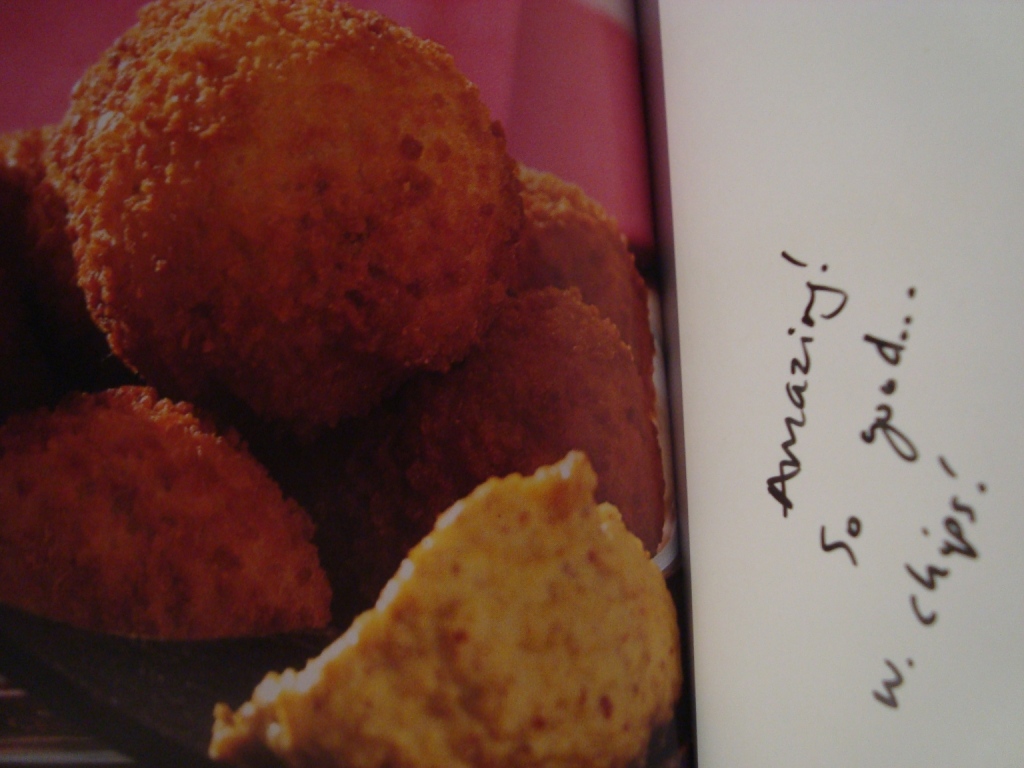 Amazing!
So good...
w. chips!